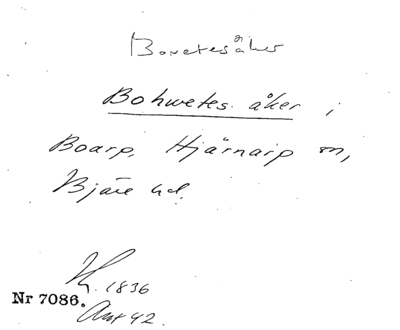 Bovetesåker
Bohwetes åker i
Boarp, Hjärnarp sn,
Bjäre hd.
1836
Nr 7086.
Akt 42.